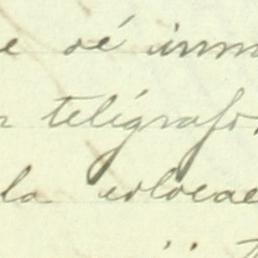 e sé inm
r telégrafo.
la colocac